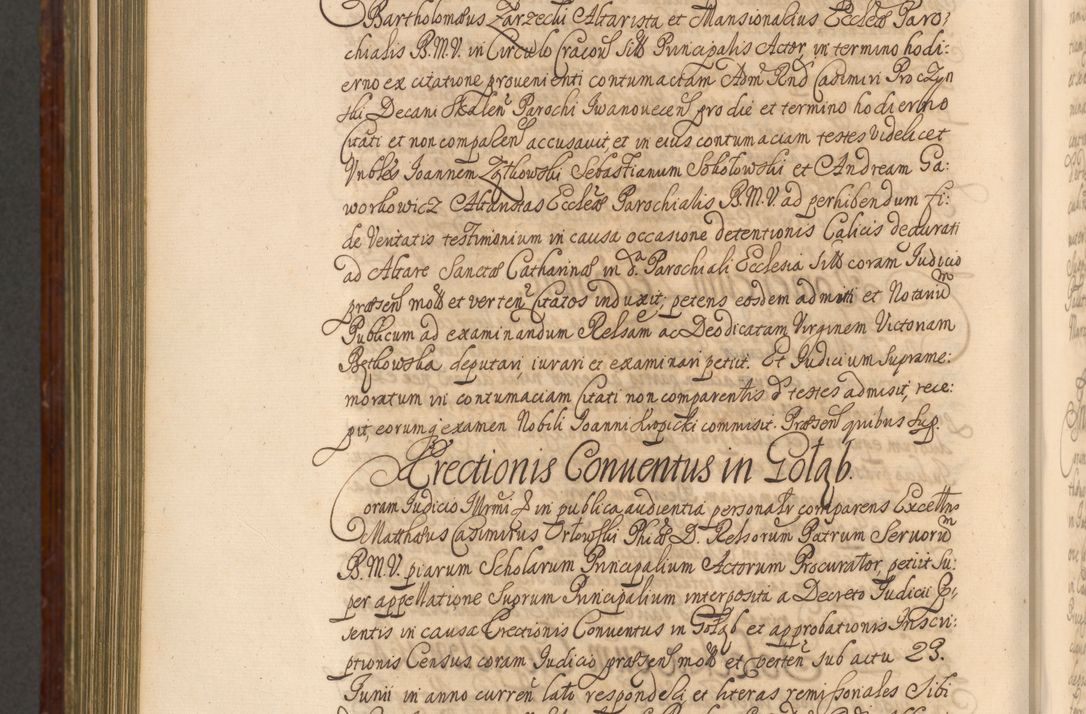 Bartholomæus Zarzecki Altarista et Mansionarius Eccleæ Paro:
chialis B.M.V. in Circulo Cracoŭ Sitt Principalis Actor, in termino hodi:
erno ex citatione provenienti contumactam Adm Rnd Casimiri Proczyn
ski Decani Skaleñ Parochi Iwanoviceñ pro die et termino hodierno
Citati et non compareñ accusavit, et in eius contumaciam testes videlicet
Vnbles Joannem Zytkowski Sebastianum Sokołowski et Andream Ga:
workowicz Altaristas Eccleæ Parochialis B.M.V. ad perhibendum fi:
de Veritatis testimonium in causa occasione detentionis Calicis deaurati
ad Altare Sanctæ Catharinæ in d. Parochiali Ecclesia Sitt coram Judicio
præseñ mott et verteñ Citatos induxit; petens eosdem admitti et Notariũ
Publicum ad examinandum Relsam ac Deodicatam Virginem Victoriam
Bętkowska deputari, iurari et examinari petiit. Et Judicium Suprame:
moratum in contumaciam Citati non comparentis d testes admisit, rece:
pit, eorumq examen Nobili Joanni Łopicki commisit. Præseñ quibus Sup.
Erectionis Conuentus in Gołąb.
Coram Judicio Illrmi & in publica audientia personalr comparens Excellns
Matthæus Casimirus Orłowski Phiæ D. Relsorum Patrum Servorũ
B.M.V. piarum Scholarum Principalium Actorum Procurator, petiit Su:
per appellatione Suprum Principalium interposita a Decreto Judicii Præ:
sentis in causa Erectionis Conuentus in Gołąb et approbationis Inscri:
ptionis Census coram Judicio præseñ mott et verteñ sub actu 23.
Junii in anno curreñ lato respondeli et literas remissionales Sibi